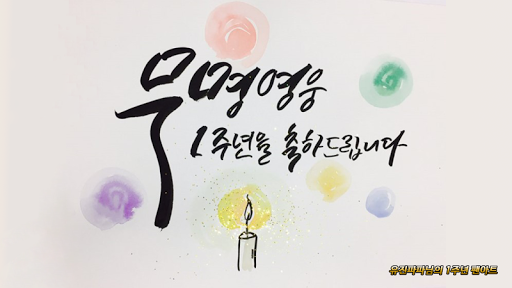 무명영웅
1주년을 축하드립니다
유진파파님의 1주년 팬아트